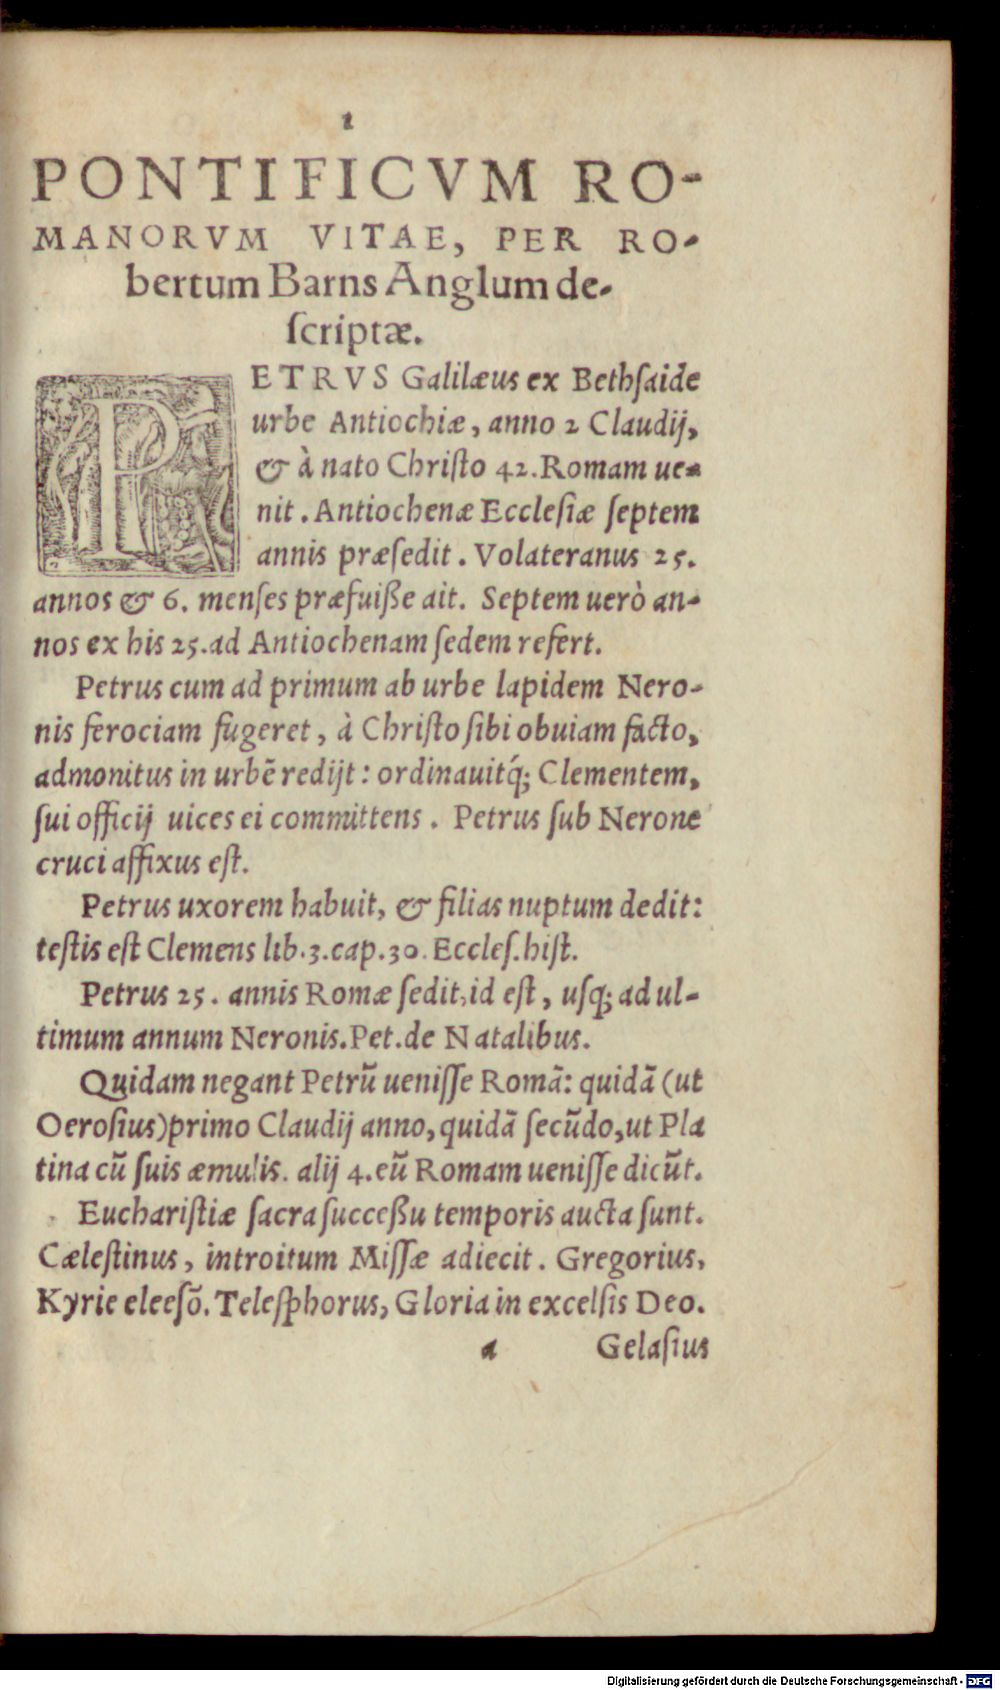 1
PONTIFICVM RO-
MANORVM VITAE, PER RO-
bertum Barns Anglum de-
ſcriptæ.
PETRVS Galilæus ex Bethſaide
urbe Antiochiæ, anno 2 Claudij,
& à nato Chriſto 42. Romam ue-
nit. Antiochenæ Eccleſiæ ſeptem
annis præſedit. Volateranus 25.
annos & 6. menſes præfuiße ait. Septem uerò an-
nos ex his 25. ad Antiochenam ſedem refert.
Petrus cum ad primum ab urbe lapidem Nero-
nis ferociam fugeret, à Chriſto ſibi obuiam facto,
admonitus in urbē redijt: ordinauitq́; Clementem,
ſui officij uices ei committens. Petrus ſub Nerone
cruci affixus eſt.
Petrus uxorem habuit, & filias nuptum dedit:
teſtis eſt Clemens lib. 3. cap. 30. Eccleſ. hiſt.
Petrus 25. annis Romæ ſedit, id eſt, uſq; ad ul-
timum annum Neronis. Pet. de Natalibus.
Quidam negant Petrū ueniſſe Romā: quidā (ut
Oeroſius) primo Claudij anno, quidā ſecūdo, ut Pla
tina cū ſuis æmulis. alij 4. eū Romam ueniſſe dicūt.
Euchariſtiæ ſacra ſucceßu temporis aucta ſunt.
Cæleſtinus, introitum Miſſæ adiecit. Gregorius,
Kyrie eleeſō. Teleſphorus, Gloria in excelſis Deo.
a Gelaſius
Digitalisierung gefördert durch die Deutsche Forschungsgemeinschaft - DFG